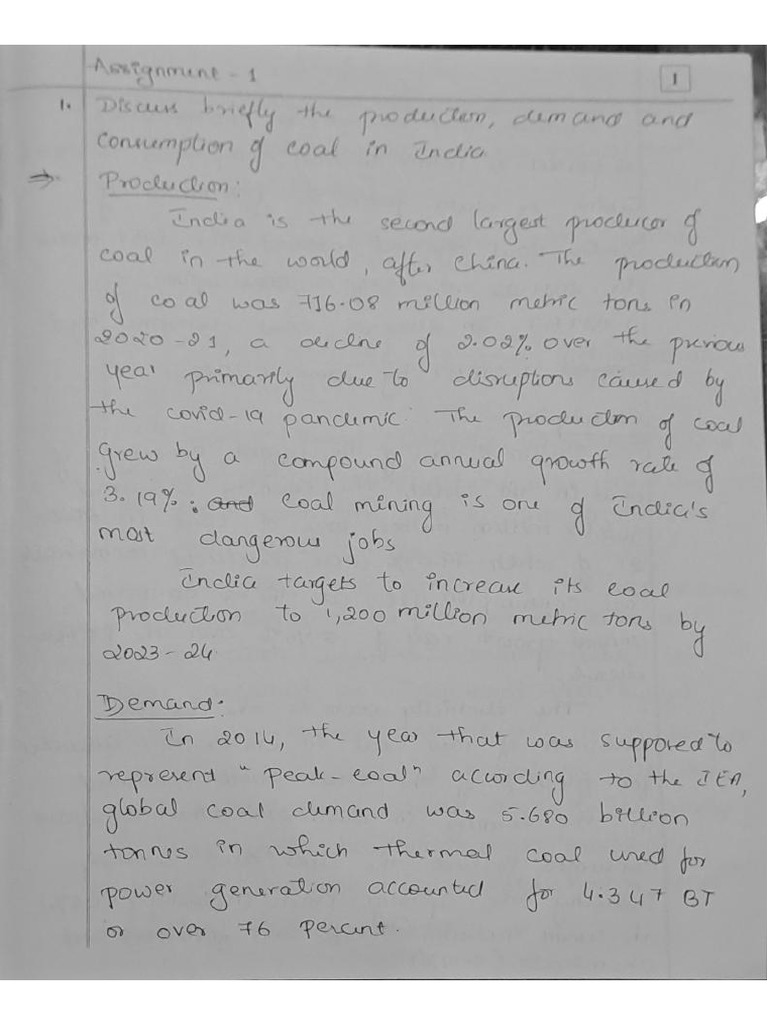 Assignment - 1
1
1. Discuss briefly the production, demand and
consumption of coal in India
⇒ Production:
India is the second largest producer of
coal in the world, after China. The production
of coal was 716.08 million metric tons in
2020-21, a decline of 2.02% over the previous
year primarily due to disruptions caused by
the covid-19 pandemic. The production of coal
grew by a compound annual growth rate of
3.19%. And coal mining is one of India's
most dangerous jobs
India targets to increase its coal
production to 1,200 million metric tons by
2023-24.
Demand:
In 2014, the year that was supposed to
represent "peak-coal" according to the IEA,
global coal demand was 5.680 billion
tonnes in which thermal coal used for
power generation accounted for 4.347 BT
or over 76 percent.